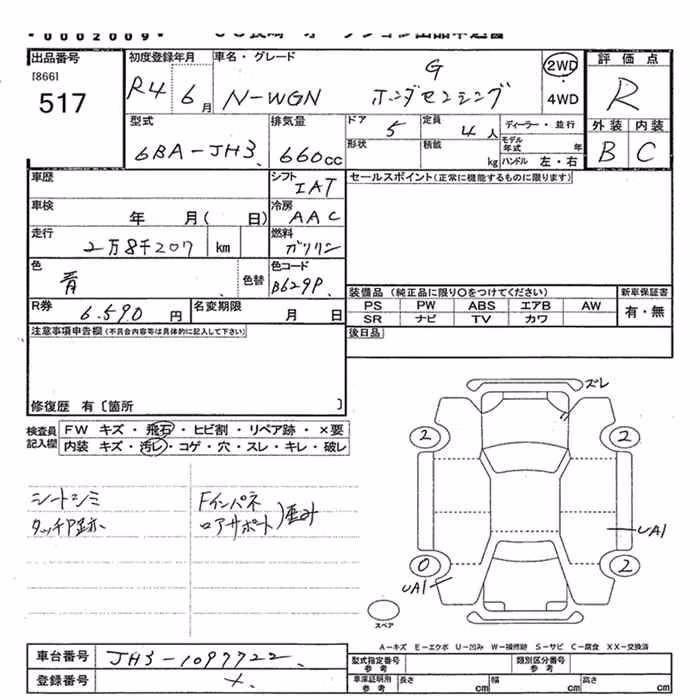 *0002009*
出品番号
[866]
517
初度登録年月
R4 6月
車名・グレード
G
N-WGN ホンダセンシング
2WD
4WD
評価点
R
外装 内装
B C
型式
6BA-JH3
排気量
660cc
ドア 5
定員 4人
ディーラー・並行
形状
積載 kg
モデル年式 年
ハンドル 左・右
車歴
シフト
IAT
セールスポイント(正常に機能するものに限ります)
車検
年 月( 日)
冷房
AAC
走行
2万8千207 km
燃料
ガソリン
色
青
色替
色コード
B629P
R券
6.590円
名変期限
月 日
装備品(純正品に限り○をつけてください)
新車保証書
PS PW ABS エアB AW
SR ナビ TV カワ
有・無
注意事項申告欄(不具合内容等は具体的に記入して下さい)
後日品
修復歴 有〔箇所 〕
検査員記入欄
FW キズ・飛石・ヒビ割・リペア跡・×要
内装 キズ・汚レ・コゲ・穴・スレ・キレ・破レ
シートシミ
タッチP跡
Fインパネ
ロアサポート)歪み
ズレ
2 2
UA1
0 2
UA1
スペア
A-キズ E-エクボ U-凹み W-補修跡 S-サビ C-腐食 XX-交換済
車台番号
JH3-1097722
登録番号
×
型式指定番号 参考
類別区分番号 参考
車庫証明用 参考
長さ cm
幅 cm
高さ cm